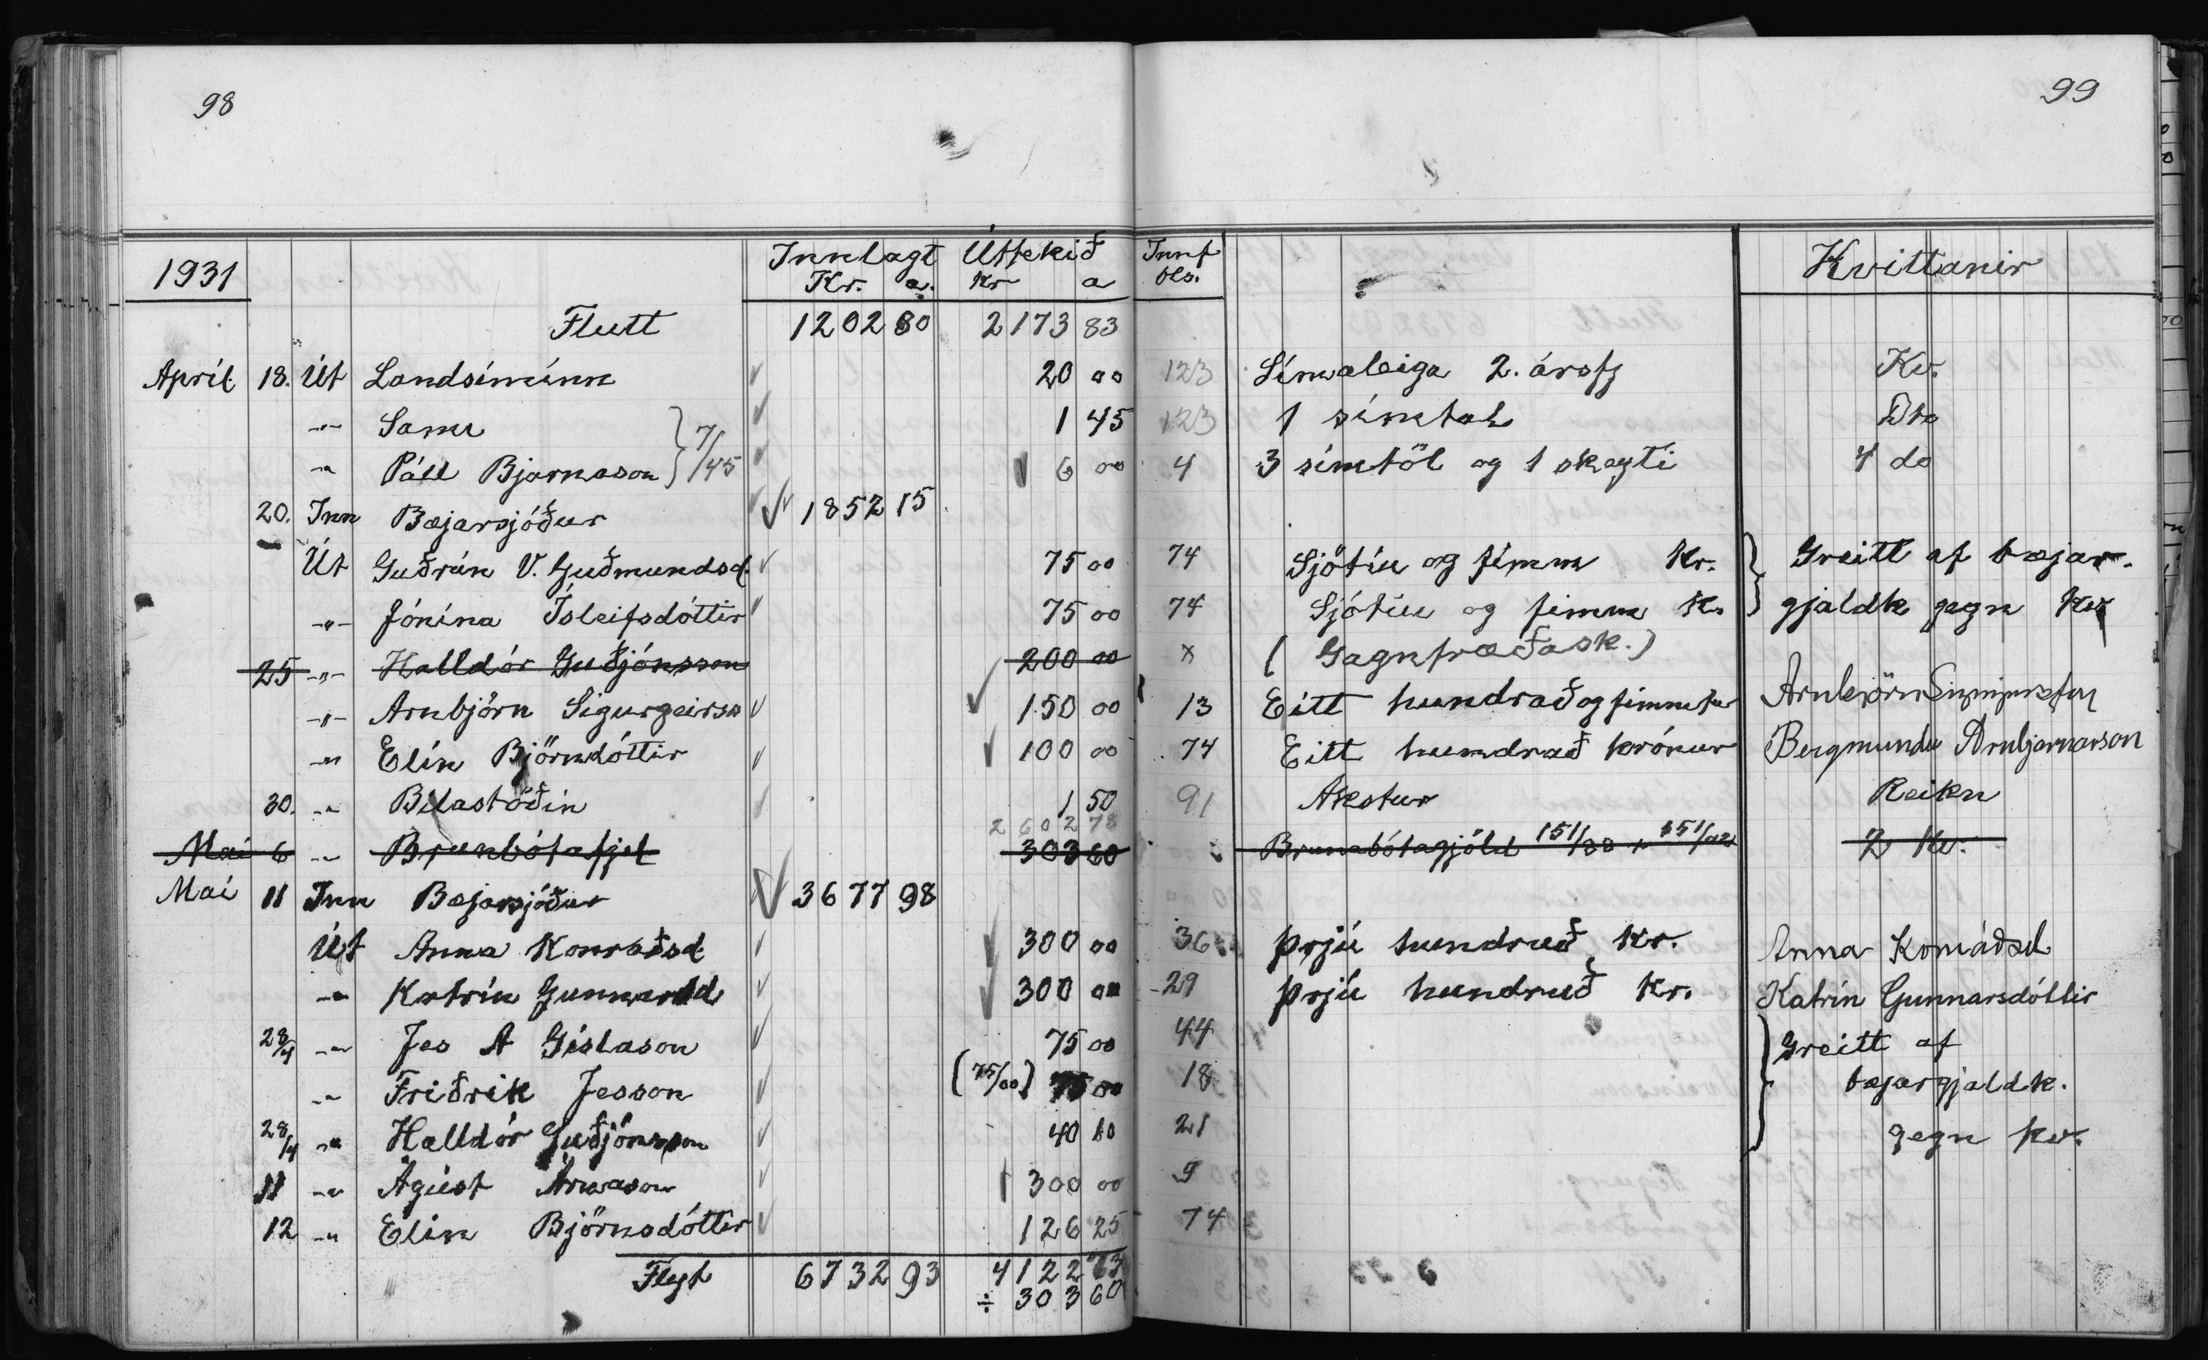 98
99
1931 Innlagt Úttekið Innf Kvittanir
Kr. a. Kr a bls.
Flutt 1202 80 2173 83
Apríl 18. Út Landsíminn 20 00 123 Símaleiga 2. ársfj Kv.
-"- Sami 1 45 123 1 símtal Dto
-"- Páll Bjarnason } 7/45 6 00 4 3 símtöl og 1 skeyti 4 do
20. Inn Bæjarsjóður 1852 15
Út Guðrún V. Guðmundsd. 75 00 74 Sjötíu og fimm Kr. } Greitt af bæjar-
-"- Jónína Ísleifsdóttir 75 00 74 Sjötíu og fimm Kr. gjaldk gegn Kv
25 -"- Halldór Guðjónsson 200 00 x ( Gagnfræðask.)
-"- Arnbjörn Sigurgeirsn 150 00 13 Eitt hundrað og fimmtíu Arnbjörn Sigurgeirsson
-"- Elín Björnsdóttir 100 00 74 Eitt hundrað krónur Bergmundur Arnbjarnarson
30. -"- Bílastöðin 1 50 91 Akstur Reikn
2602 78
Maí 6 -"- Brunbótafjel 303 60 Brunabótagjöld 151/88 + 151/72 2 Kv.
Maí 11 Inn Bæjarsjóður 3677 98
Út Anna Konráðsd 300 00 36 Þrjú hundruð Kr. Anna Konráðsd
-"- Katrín Gunnarsd 300 00 29 Þrjú hundruð Kr. Katrín Gunnarsdóttir
28/4 -"- Jes A Gíslason 75 00 44 } Greitt af
-"- Friðrik Jesson (75/00) 75 00 18 bæjargjaldk.
28/4 -"- Halldór Guðjónsson 40 10 21 gegn kv.
11 -"- Ágúst Árnason 300 00 9
12 -"- Elín Björnsdóttir 126 25 74
Flyt 6732 93 4122 73
÷ 303 60